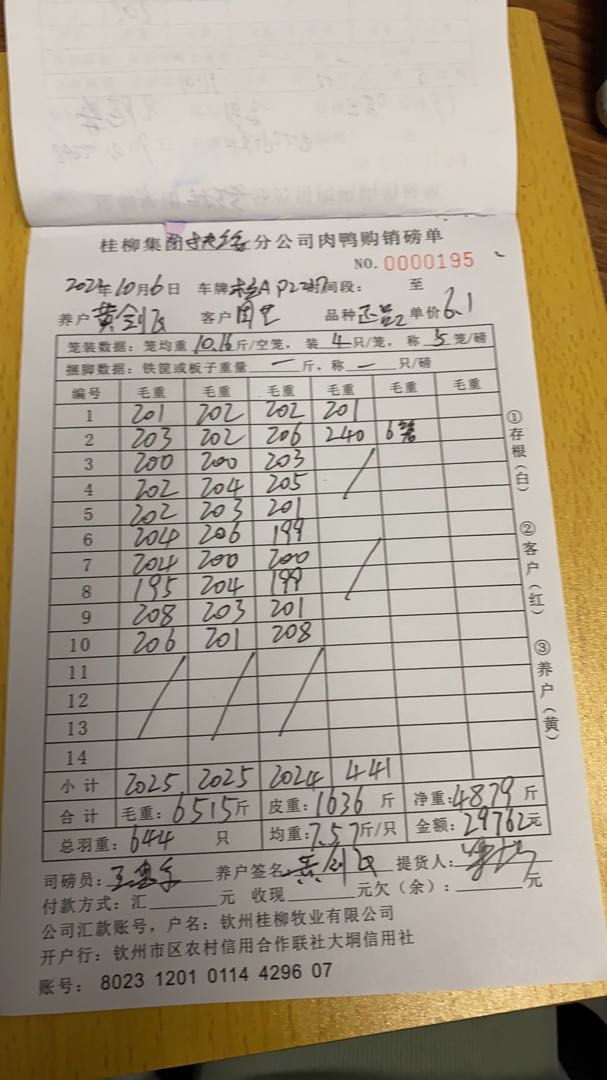 桂柳集团 分公司肉鸭购销磅单
NO. 0000195
2024年10月6日 车牌 时间段: 至
养户 黄剑 客户 周 品种 正品2 单价6.1
笼装数据: 笼均重 10.16 斤/空笼, 装 4 只/笼, 称 5 笼/磅
捆脚数据: 铁筐或板子重量 一 斤, 称 一 只/磅
编号 毛重 毛重 毛重 毛重 毛重 毛重
1 201 202 202 201
2 203 202 206 240 6笼
3 200 200 203
4 202 204 205
5 202 203 201
6 204 206 199
7 204 200 200
8 195 204 199
9 208 203 201
10 206 201 208
11
12
13
14
小计 2025 2025 2024 441
合计 毛重: 6515斤 皮重: 1636 斤 净重: 4879 斤
总羽重: 644 只 均重: 7.57斤/只 金额: 29762元
司磅员: 养户签名 黄剑 提货人:
付款方式: 汇 元 收现 元欠(余): 元
公司汇款账号, 户名: 钦州桂柳牧业有限公司
开户行: 钦州市区农村信用合作联社大垌信用社
账号: 8023 1201 0114 4296 07
①存根(白)
②客户(红)
③养户(黄)